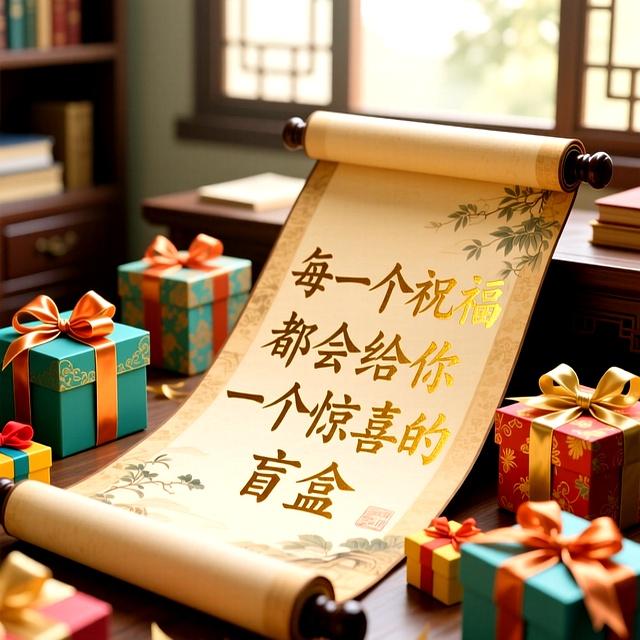 每一个祝福
都会给你
一个惊喜的
盲盒